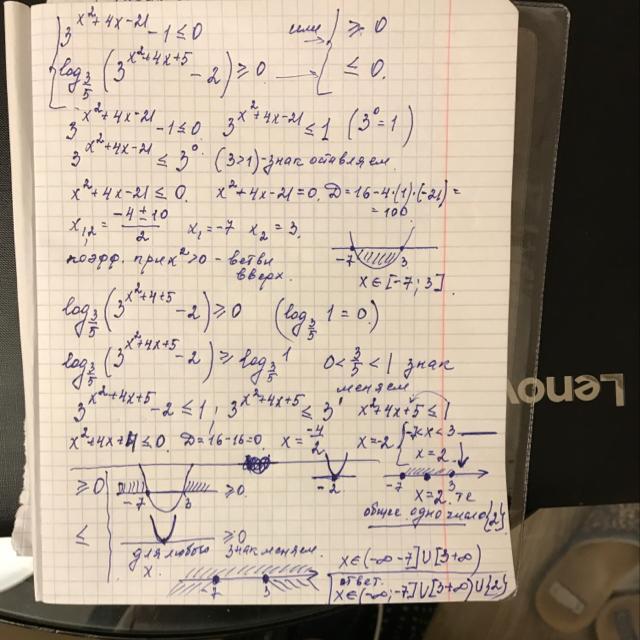 3^(x²+4x-21) - 1 ≤ 0 или ≥ 0
log_(3/5) (3^(x²+4x+5) - 2) ≥ 0 ≤ 0.
3^(x²+4x-21) - 1 ≤ 0 3^(x²+4x-21) ≤ 1 (3⁰ = 1)
3^(x²+4x-21) ≤ 3⁰ (3>1)-знак оставляем.
x²+4x-21 ≤ 0. x²+4x-21=0. D=16-4·(1)·(-21)=
=100.
x₁,₂ = (-4±10)/2 x₁=-7 x₂=3.
-7 3
коэфф. при x²>0 - ветви
вверх.
x∈[-7; 3].
log_(3/5) (3^(x²+4+5) - 2) ≥ 0 (log_(3/5) 1 = 0)
log_(3/5) (3^(x²+4x+5) - 2) ≥ log_(3/5) 1 0 < 3/5 < 1 знак
меняем
3^(x²+4x+5) - 2 ≤ 1; 3^(x²+4x+5) ≤ 3¹ x²+4x+5 ≤ 1
x²+4x+4 ≤ 0. D=16-16=0. x = -4/2 x=-2
-7<x<3
x=2
≥0 -7 3 ≥0.
-2
-7 3
x=2. те
общее одно число {2}
≤ ≥0
для любого знак меняем.
x.
-7 3
x∈(-∞-7]∪[3+∞)
ответ.
x∈(-∞;-7]∪[3+∞)∪{2}
Lenov